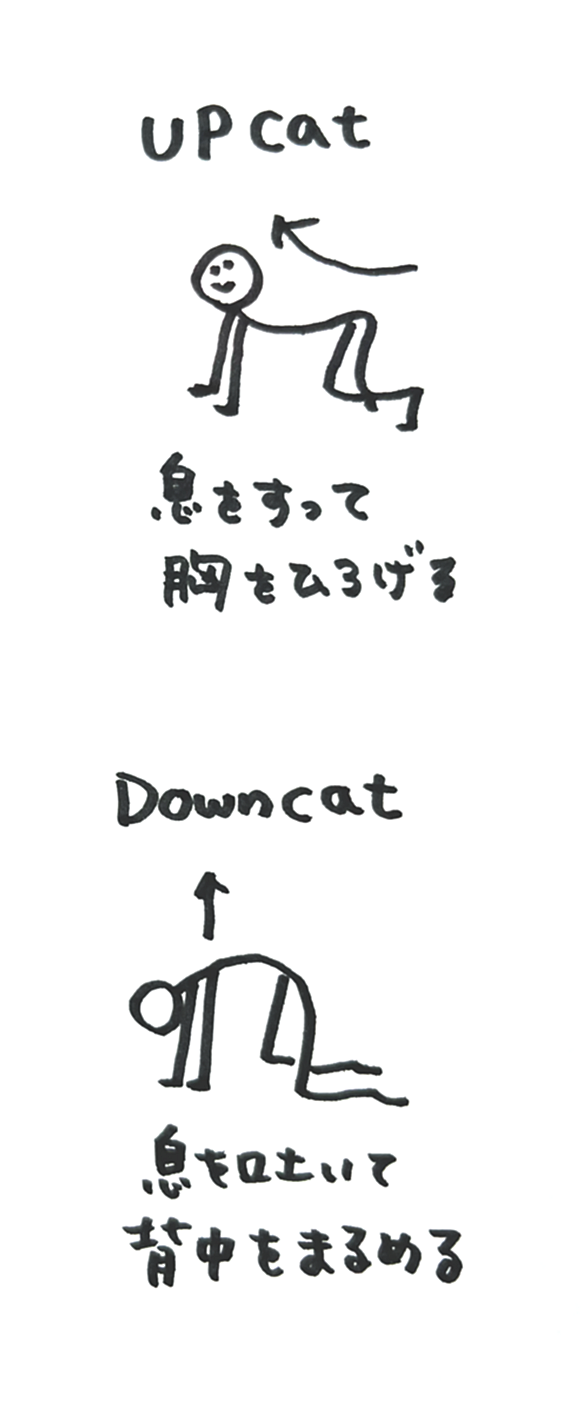 UP cat
息をすって
胸をひろげる
Down cat
息を吐いて
背中をまるめる